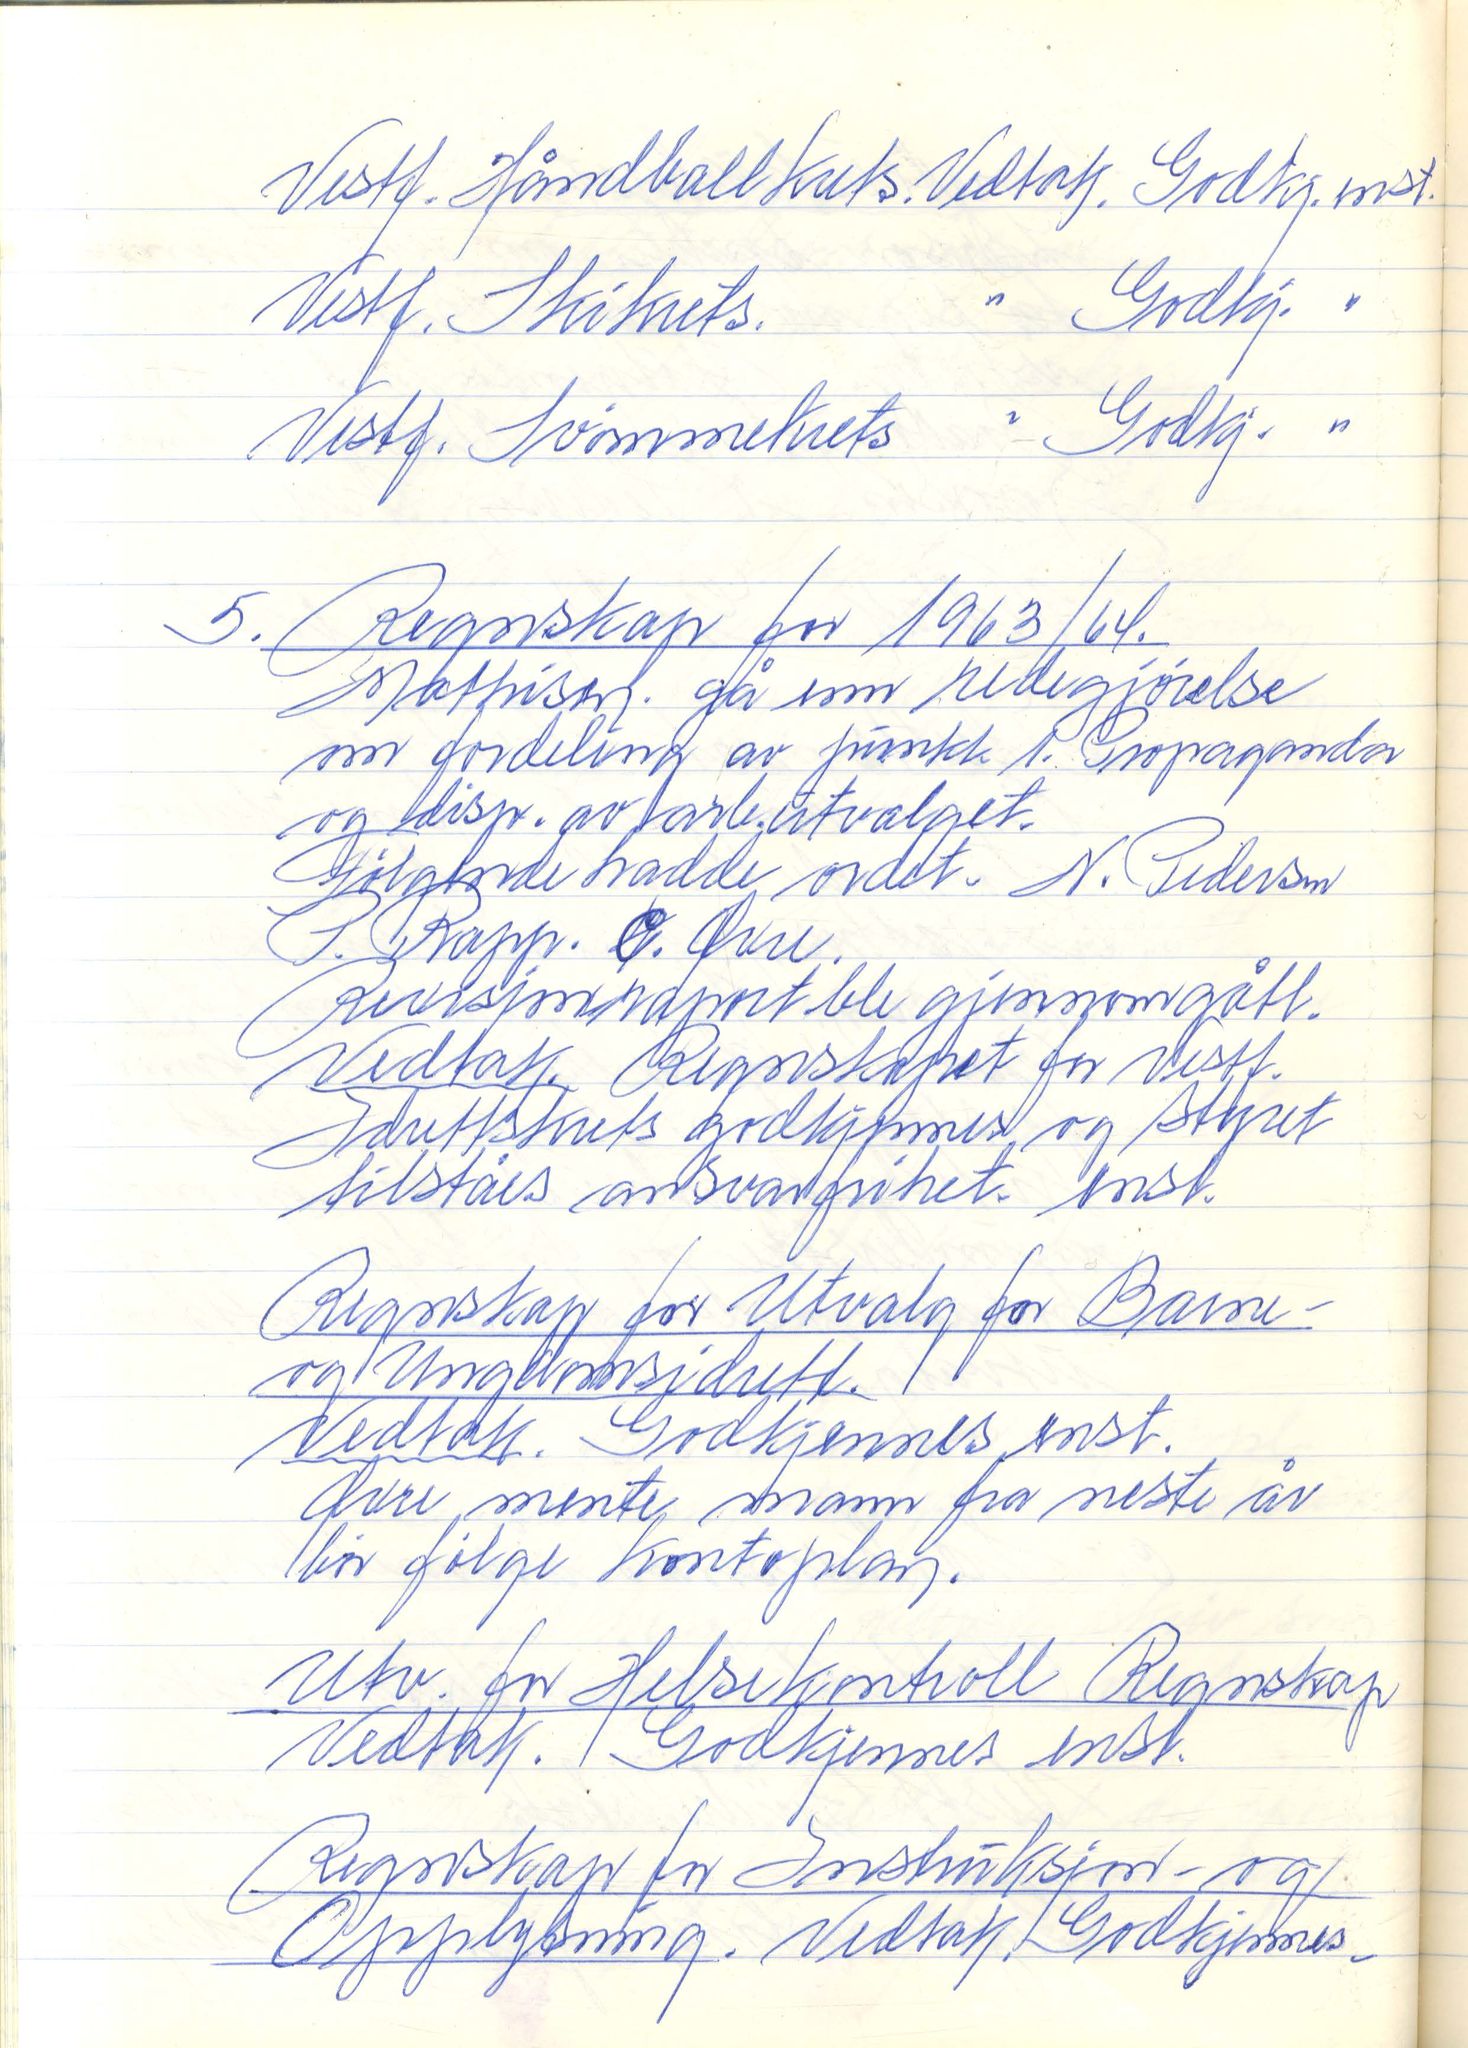 Vestf. Håndballkrets. Vedtak. Godkj. enst.
Vestf. Skikrets. " Godkj. "
Vestf. Svømmekrets " Godkj. "
5. Regnskap for 1963/64.
Mathisen. gå enn redegjørelse
om fordeling av punkt 1. Propaganda
og disp. av arb.utvalget.
Følgende hadde ordet. N. Pedersen
P. Rapp. O. Øvre.
Revisjonsraport ble gjennomgått.
Vedtak. Regnskapet for Vestf.
Idrettskrets godkjennes og styret
tilståes ansvarfrihet. enst.
Regnskap for Utvalg for Barne-
og Ungdomsidrett.
Vedtak. Godkjennes enst.
Øvre mente mann fra neste år
bør følge kontoplan.
Utv. for Helsekontroll Regnskap
Vedtak. Godkjennes enst.
Regnskap for Instruksjon- og
Opplysning. Vedtak. Godkjennes-